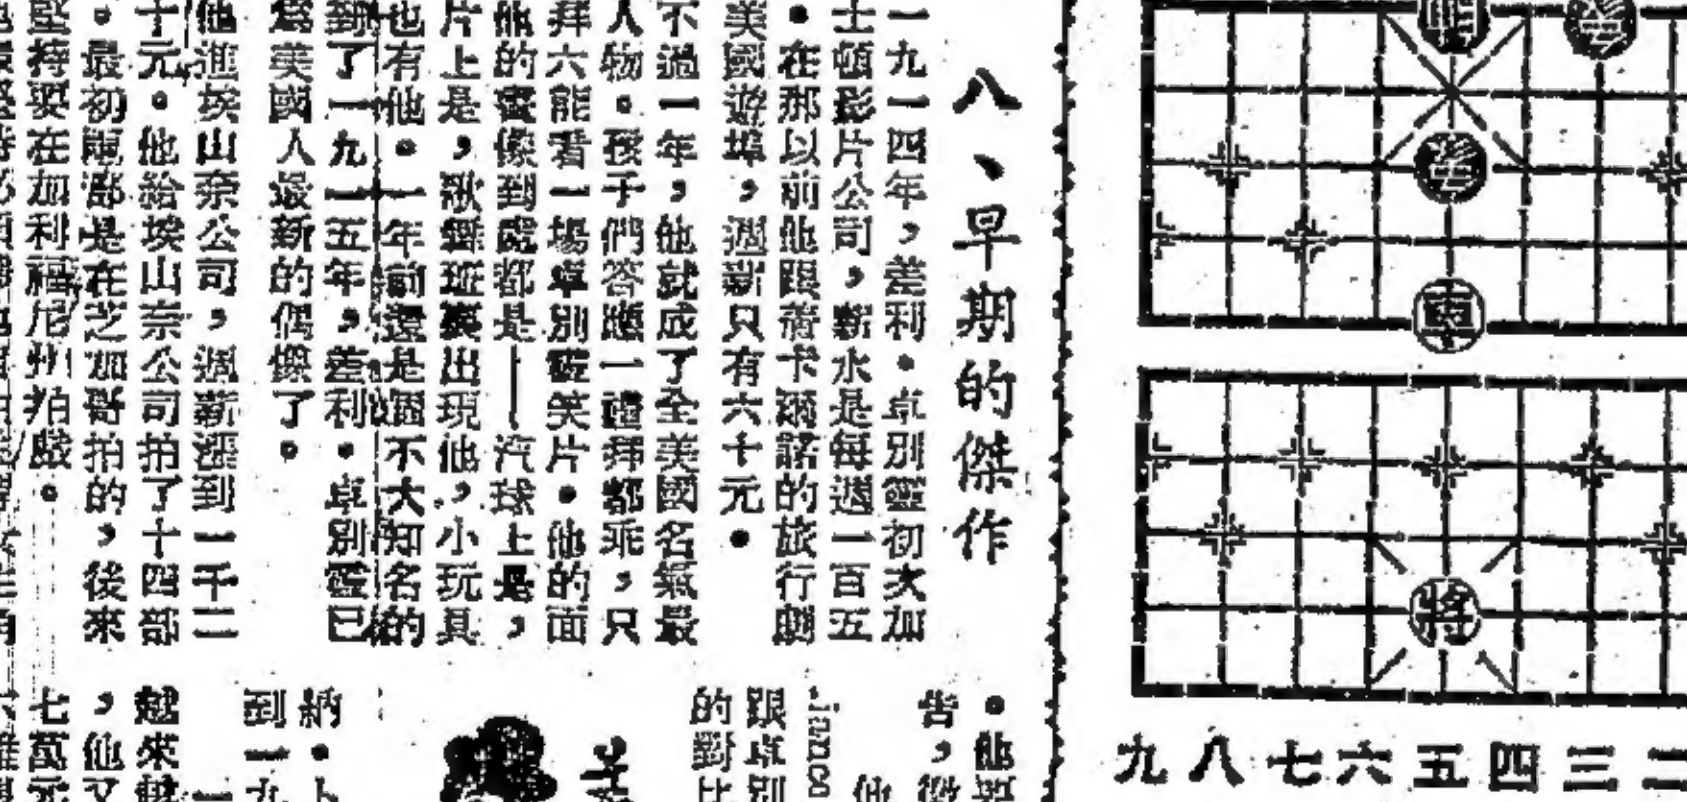 八、早期的傑作
一九一四年，差利・卓別靈初次加
士頓影片公司，薪水是每週一百五
・在那以前他跟着卡爾諾的旅行劇
美國遊埠，週薪只有六十元・
不過一年，他就成了全美國名氣最
人物。孩子們答應一禮拜都乖，只
拜六能看一場卓別靈笑片・他的面
他的畫像到處都是——汽球上是，
片上是，歌舞班裏出現他，小玩具
也有他。一年前還是個不大知名的
到了一九一五年，差利・卓別靈已
爲美國人最新的偶像了。
他進埃山奈公司，週薪漲到一千二
十元。他給埃山奈公司拍了十四部
。最初兩部是在芝加哥拍的，後來
堅持要在加利福尼州拍戲。
・他
告，
他
跟卓別
的對比
納・卜
到一九
越來
，他又
七萬元
車
將
九八七六五四三二